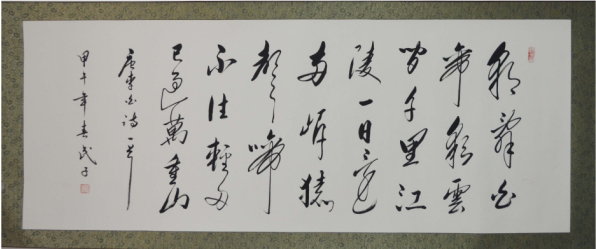 朝辭白
帝彩雲
間千里江
陵一日還
兩岸猿
聲啼
不住輕舟
已過萬重山
唐李白詩一首
甲午年春